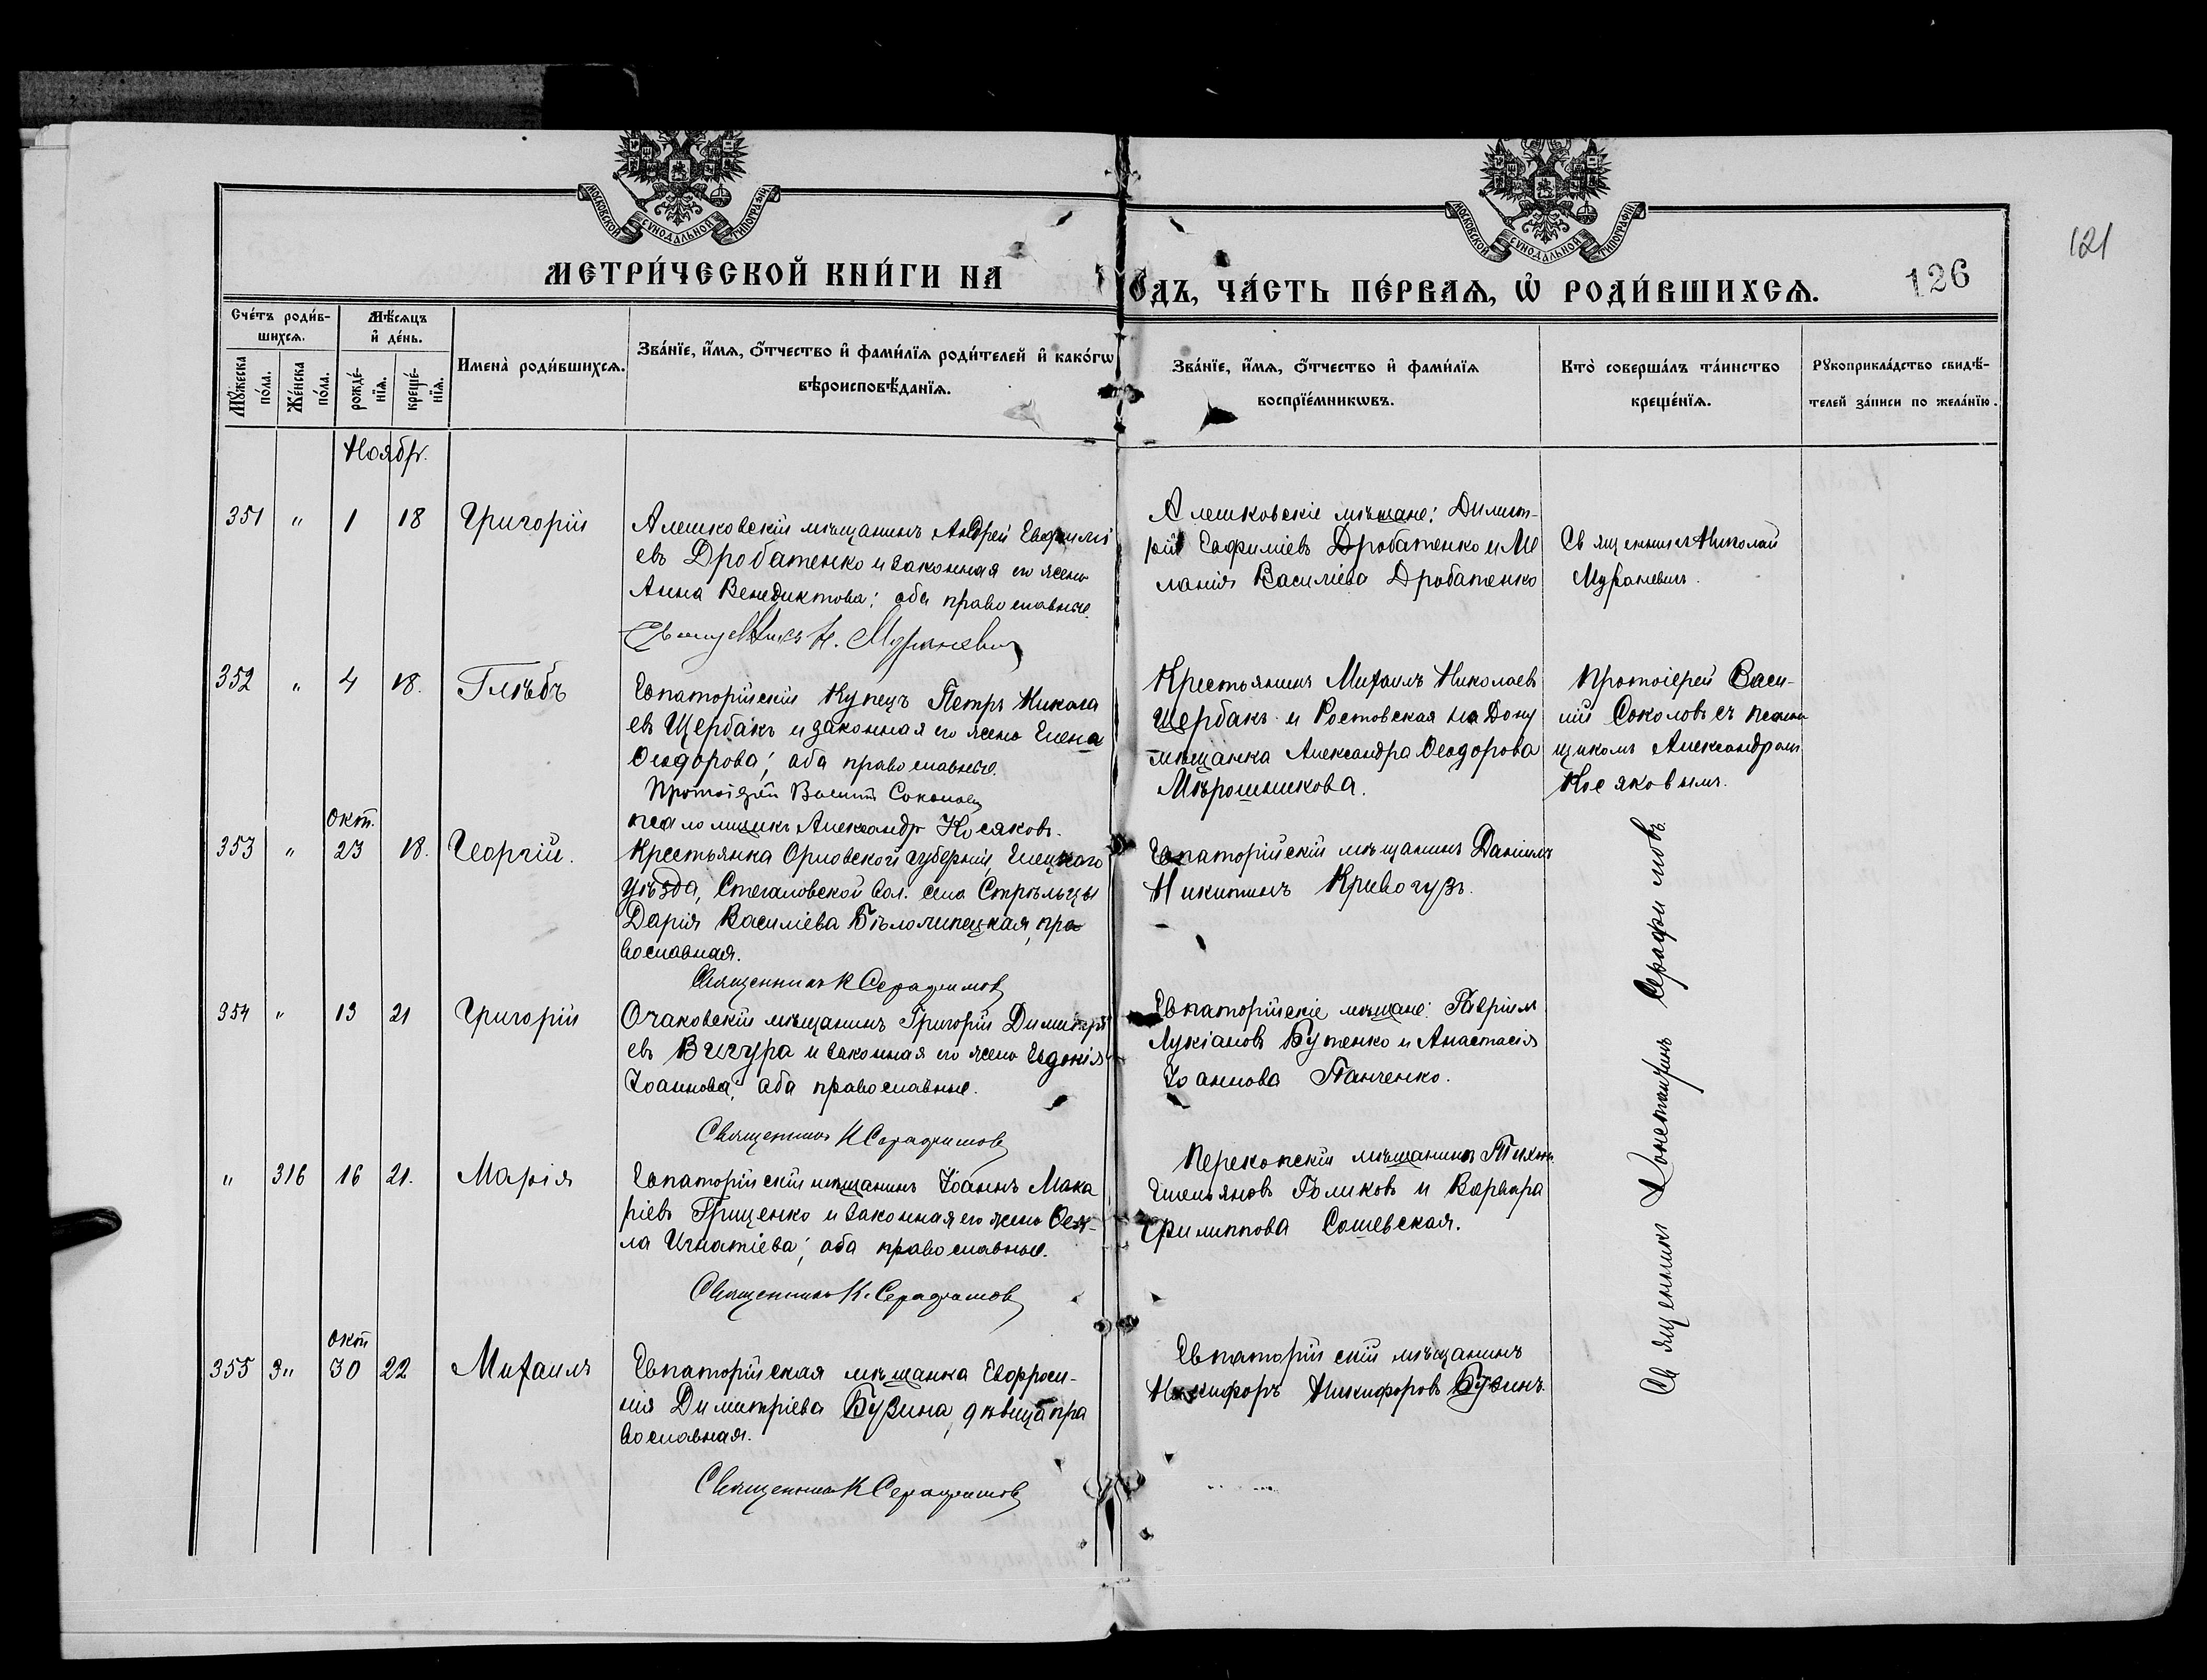 МОСКОВСКОЙ СУНОДАЛЬНОЙ ТИПОГРАФІИ
МОСКОВСКОЙ СУНОДАЛЬНОЙ ТИПОГРАФІИ
121
МЕТРИ́ЧЕСКОЙ КНИ́ГИ НА
ОДЪ, ЧА́СТЬ ПЕ́РВАѦ, Ѡ РОДИ́ВШИХСѦ.
126
Сче́тъ роди́в-
шихсѧ.
Мѣ́сѧцъ
и҆ де́нь.
Мꙋ́жеска
по́ла.
Же́нска
по́ла.
рожде́-
нїѧ.
креще́-
нїѧ.
Имена̀ роди́вшихсѧ.
Зва́нїе, и҆́мѧ, ѻ҆́тчество и҆ фами́лїѧ роди́телей и҆ како́гѡ
вѣроисповѣ́данїѧ.
Зва́нїе, и҆́мѧ, ѻ҆́тчество и҆ фами́лїѧ
воспрїе́мникѡвъ.
Кто̀ соверша́лъ та́инство
креще́нїѧ.
Рꙋкоприкла́дство свидѣ́-
телей за́писи по жела́нїю.
Ноябр.
351 " 1 18 Григорій
Алешковскій мѣщанинъ Андрей Евфимі
евъ Дробатенко и законная его жена
Анна Венедиктова; оба православные.
Священникъ Н. Мураневич
Алешковскіе мѣщане: Димит-
рій Евфиміевъ Дробатенко и Ме
ланія Василіева Дробатенко
Священникъ Николай
Мураневич.
352 " 4 18. Глѣбъ
Евпаторійскій купецъ Петръ Никола
евъ Щербакъ и законная его жена Елена
Ѳеодорова; оба православные.
Протоіерей Василій Соколовъ
псаломщикъ Александръ Косяковъ.
Крестьянинъ Михаилъ Николаевъ
Щербакъ и Ростовская на Дону
мѣщанка Александра Ѳеодорова
Мѣрошникова.
Протоіерей Васи-
лій Соколовъ съ псалом
щикомъ Александромъ
Косяковымъ.
окт.
353 " 23 18. Георгій.
Крестьянка Орловской губерніи, Елецкаго
уѣзда, Стегаловской вол. села Стрѣльцы
Дарія Василіева Бѣлолипецкая, пра
вославная.
Священникъ К Серафимовъ
Евпаторійскій мѣщанинъ Даніилъ
Никитинъ Кривогузъ.
354 " 13 21 Григорій
Очаковскій мѣщанинъ Григорій Димитрі
евъ Вигура и законная его жена Евдокія
Іоаннова; оба православные.
Священникъ К Серафимовъ
Евпаторійскіе мѣщане: Гавріилъ
Лукіановъ Бутенко и Анастасія
Іоаннова Панченко.
" 316 16 21. Марія
Евпаторійскій мѣщанинъ Іоаннъ Мака
ріевъ Грищенко и законная его жена Ѳек-
ла Игнатіева; оба православные.
Священникъ К. Серафимовъ
Перекопскій мѣщанинъ Тихонъ
Емельяновъ Голиковъ и Варвара
Филиппова Сошевская.
окт
355 " 30 22 Михаилъ
Евпаторійская мѣщанка Евфроси-
нія Димитріева Бузина, дѣвица пра
вославная.
Священникъ К Серафимовъ
Евпаторійскій мѣщанинъ
Никифоръ Никифоровъ Бузинъ.
Священникъ Константинъ Серафимовъ